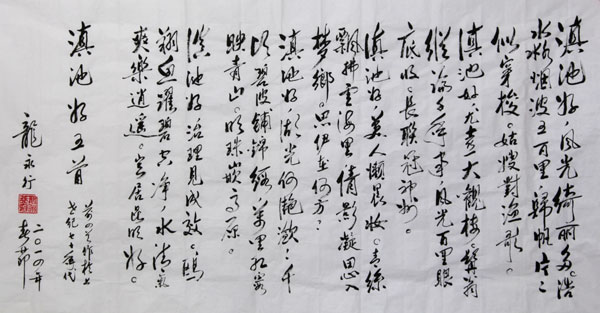 滇池好，风光绮丽多。浩
水烟波五百里，归帆片片
似穿梭。姑嫂对渔歌。
滇池好，九夷大观楼。髯翁
纵论千年事，风光百里眼
底收。长联冠神州。
滇池好，美人懒晨妆。青丝
飘拂云海里，倩影凝思入
梦乡。思伊在何方？
滇池好，湖光何艳欲。千
顷碧波铺锦缎，万里红霞
映青山。明珠嵌高原。
滇池好，治理见成效。鸥
翔鱼跃碧空净，水清气
爽乐逍遥。宜居
滇池好五首
前四首作於上
世纪七十年代
龍永行
二〇一四年